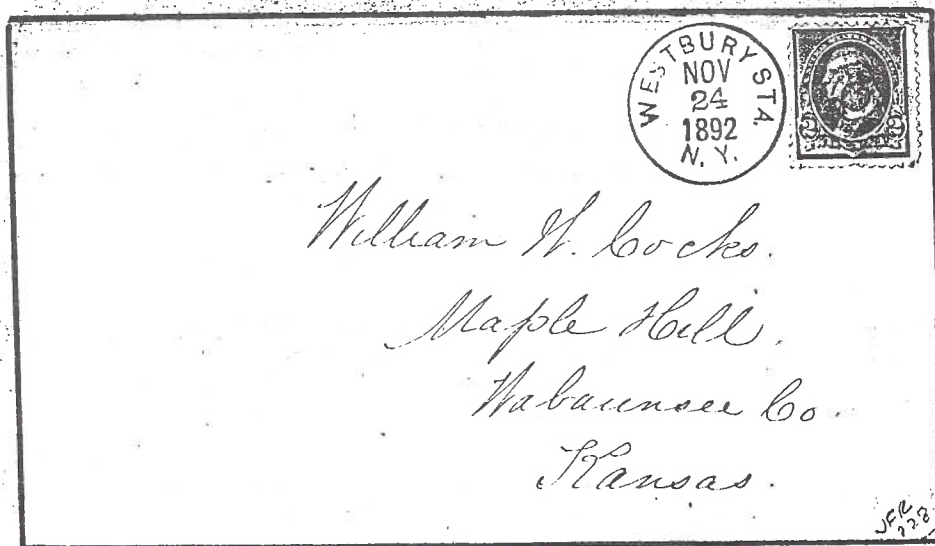 WESTBURY STA.
NOV
24
1892
N. Y.
William W. Cocks.
Maple Hill.
Wabaunsee Co.
Kansas.
JFR